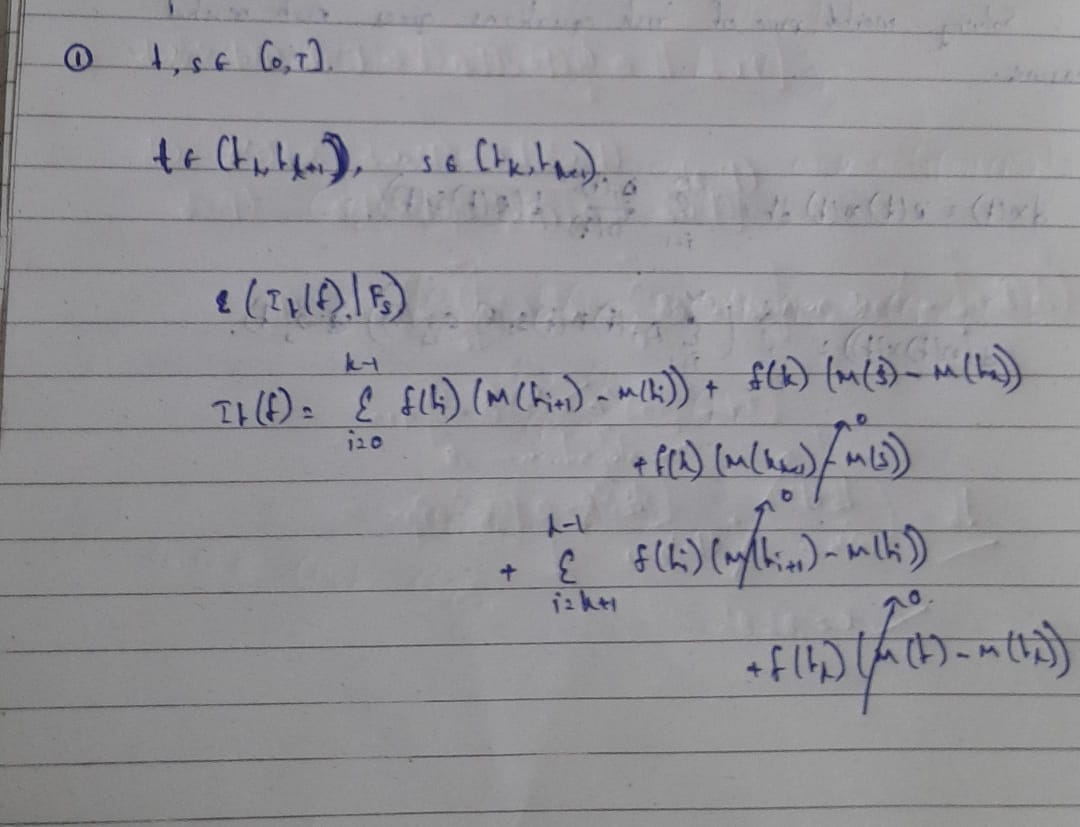 ① t, s ∈ [0,T].
t ∈ (t_l, t_{l+1}), s ∈ (t_k, t_{k+1}).
E (I_t(f) | F_s)
I_t(f) = \sum_{i=0}^{k-1} f(t_i) (M(t_{i+1}) - M(t_i)) + f(k) (M(s) - M(t_k))
+ f(k) (M(t_{k+1}) - M(s)) → 0
+ \sum_{i=k+1}^{l-1} f(t_i) (M(t_{i+1}) - M(t_i)) → 0
+ f(t_l) (M(t) - M(t_l)) → 0.